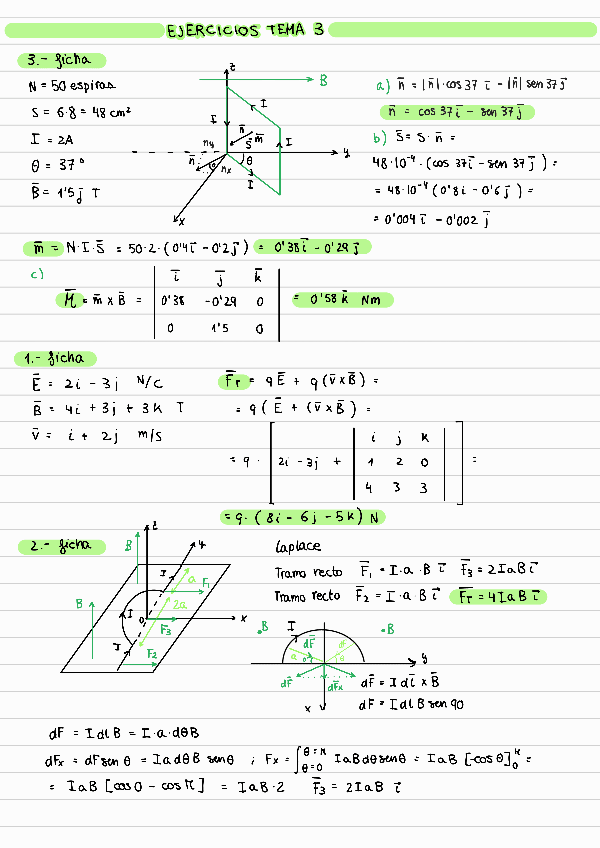 EJERCICIOS TEMA 3
3.- ficha
N = 50 espiras
S = 6·8 = 48 cm²
I = 2A
θ = 37°
B̄ = 1'5 j̄ T
z
B
I
I
I
I
n̄
S̄
m̄
n_y
n̄
n_x
θ
θ
y
x
a) n̄ = |n̄|·cos 37 ī − |n̄| sen 37 j̄
n̄ = cos 37 ī − sen 37 j̄
b) S̄ = S · n̄ =
48·10⁻⁴ · (cos 37 ī − sen 37 j̄) =
= 48·10⁻⁴ (0'8 ī − 0'6 j̄) =
= 0'004 ī − 0'002 j̄
m̄ = N·I·S̄ = 50·2·(0'4 ī − 0'2 j̄) = 0'38 ī − 0'29 j̄
c)
ī j̄ k̄
M̄ = m̄ x B̄ = 0'38 −0'29 0 = 0'58 k̄ Nm
0 1'5 0
1.- ficha
Ē = 2i − 3j N/C
B̄ = 4i + 3j + 3k T
v̄ = i + 2j m/s
F̄r = q Ē + q (v̄ x B̄) =
= q ( Ē + (v̄ x B̄) =
i j k
= q · [ 2i − 3j + 1 2 0 ] =
4 3 3
= q · (8i − 6j − 5k) N
2.- ficha
z
y
B
I
a
F₁
B
I
2a
0
x
F₃
I
F₂
Laplace
Tramo recto F̄₁ = I·a·B ī F̄₃ = 2IaB ī
Tramo recto F̄₂ = I·a·B ī F̄r = 4IaB ī
B
I
B
dF̄
a
θ
θ
y
dF̄
dF̄x
x
dF̄ = I dl̄ x B̄
dF = I dl B sen 90
dF = I dl B = I·a·dθB
dFx = dF sen θ = I a dθ B senθ ; Fx = ∫_{θ=0}^{θ=π} IaB dθ senθ = IaB [−cos θ]₀^π =
= IaB [cos 0 − cos π] = IaB·2 F̄₃ = 2IaB ī